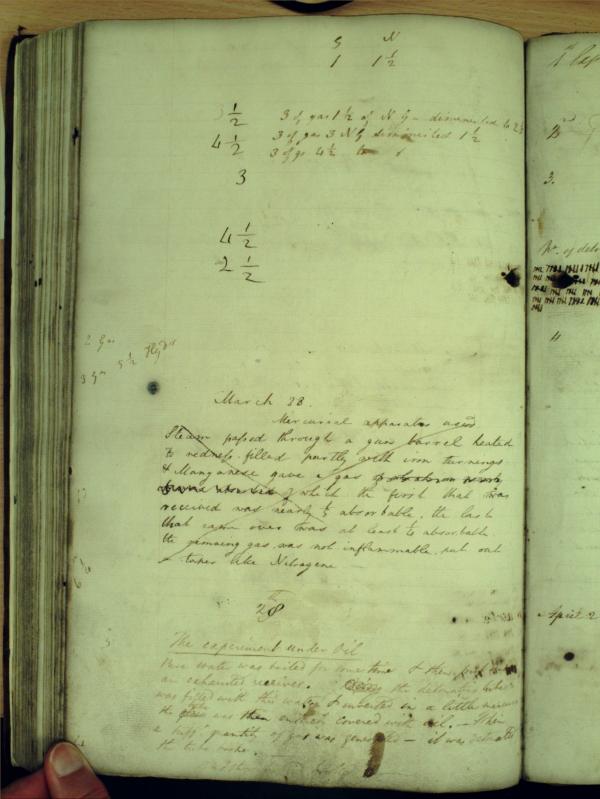 G N
1 1 1/2
1/2 3 of gas 1 1/2 of N G - diminished to 2 1/2
4 1/2 3 of gas 3 N G diminished 1 1/2
3 3 of gs 4 1/2 to
4 1/2
2 1/2
2 Gas
3 Gas 5 1/2 Hyd
March 28.
Mercurial apparatus used
Steam passed through a gun barrel heated
to redness filled partly with iron turnings
& Manganese gave a gas
of which the first that was
received was nearly absorbable, the last
that came over was at least absorbable
the remaing gas was not inflammable, put out
a taper like Nitrogene
28th
The experiment under Oil
Pure water was boiled for some time & then
an exhausted receiver. the detonating tube
was filled with this water & inverted in a little
the was then entirely covered with oil. — When
a suff. quantity of gas was generated — it was detonated
the tube broke.
2nd
3.
No. of deto
4
April 2